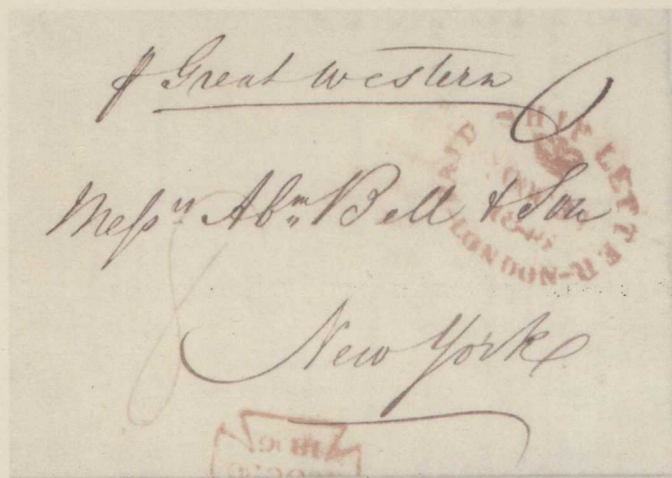 ℘ Great Western
Messrs Abm Bell & Son
New York
PAID SHIP LETTER-LONDON-
8